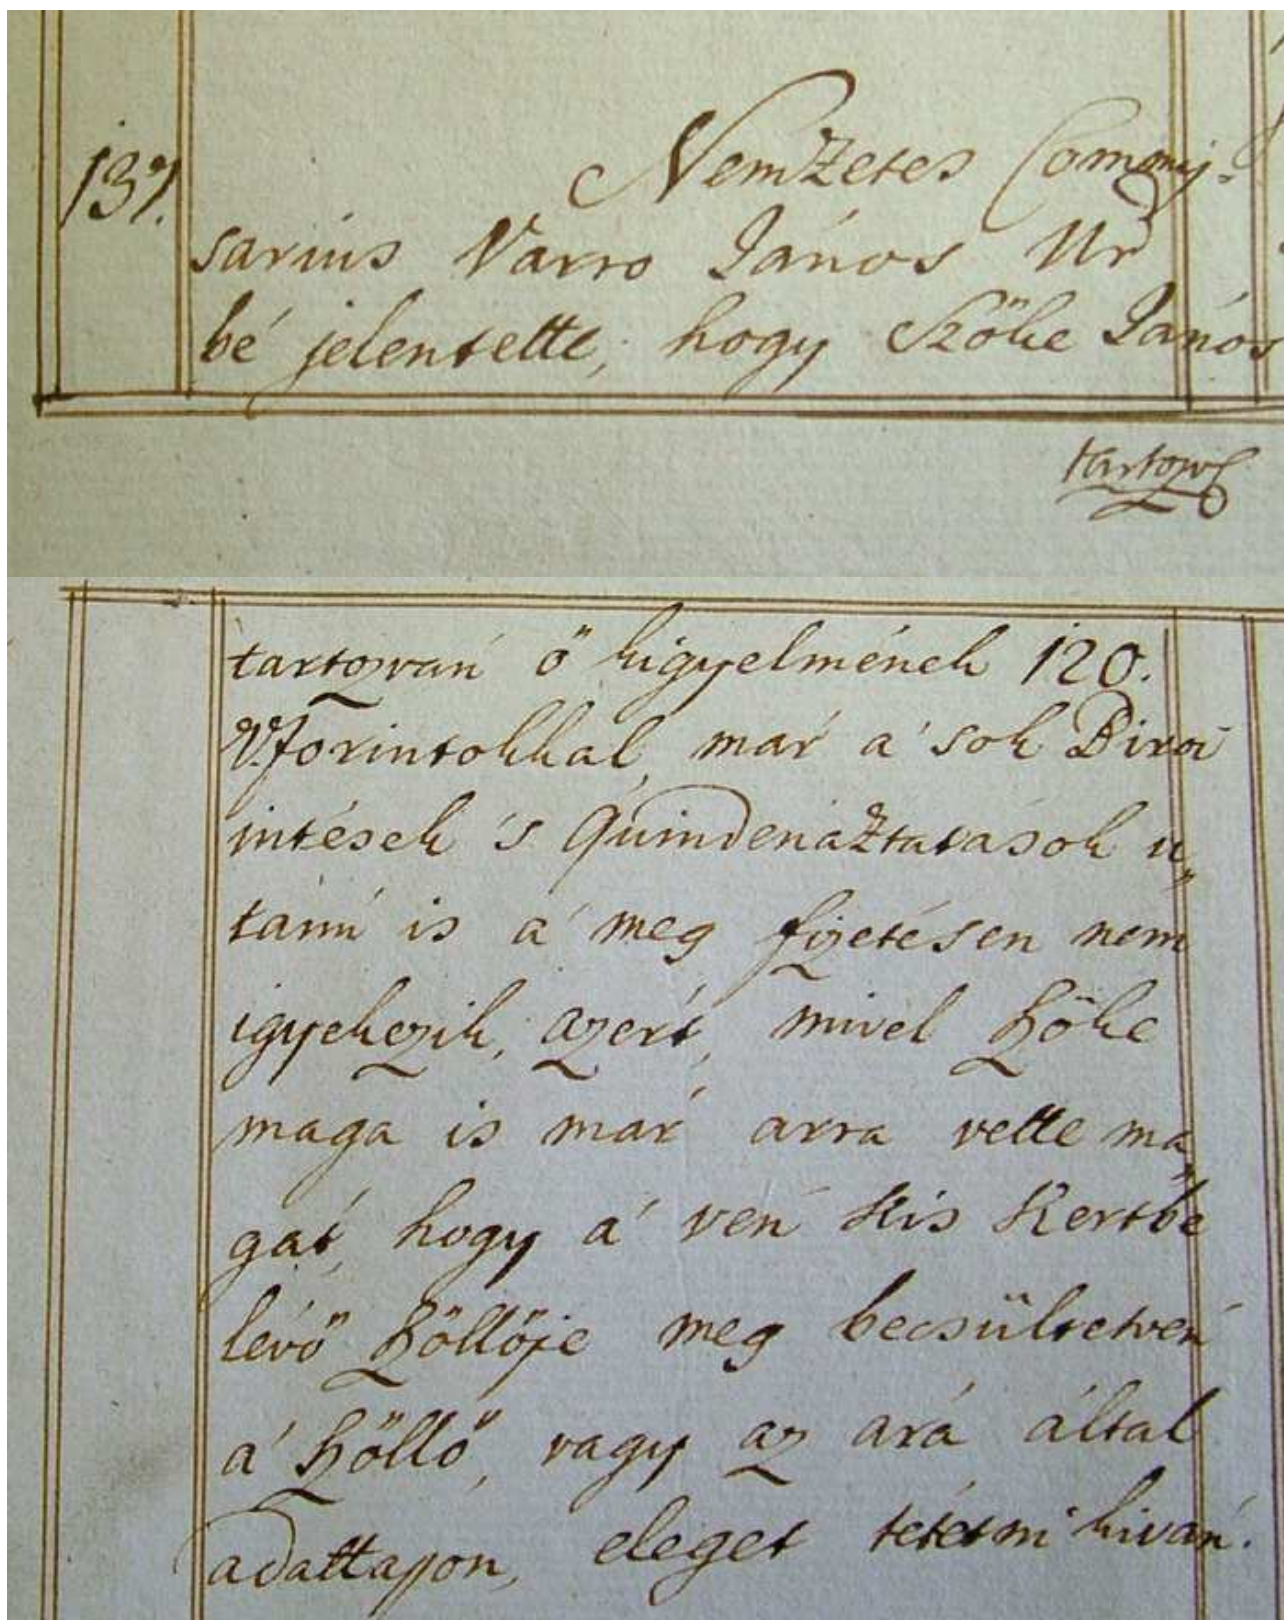 137. Nemzetes Commis-
sarius Varro János Ur
bé jelentette, hogy Szőke János
tartozv
tartozván ő kigyelmének 120.
Vforintokkal, már a' sok Birói
intések 's Quindenáztatások u„
tánn is a' meg fizetésen nem
igyekezik, azért, mivel Szőke
maga is már arra vette ma„
gát, hogy a' vén Kis Kertbe
lévő Szöllője meg becsültetvén
a' Szöllő, vagy az ára által
adattasson, eleget tétetni kiván.